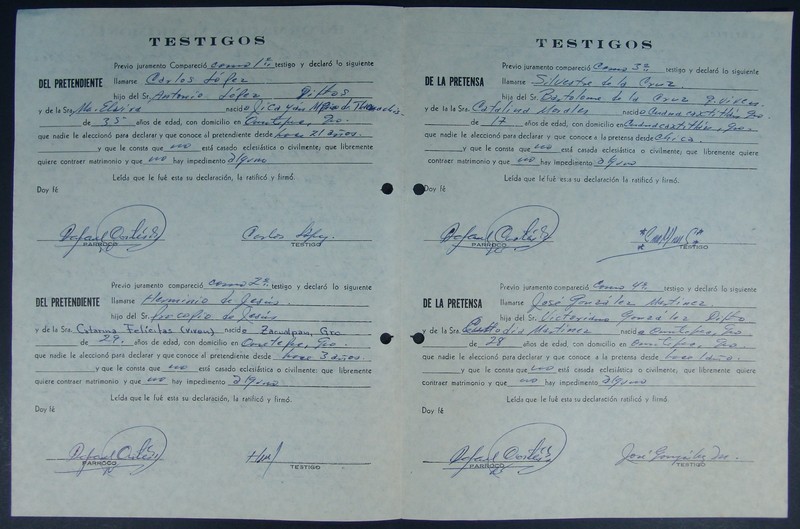 TESTIGOS
Previo juramento Compareció como 1º testigo y declaró lo siguiente
DEL PRETENDIENTE llamarse Carlos López
hijo del Sr. Antonio López Diftos
y de la Sra. Ma. Elvira nació
de 35 años de edad, con domicilio en Ometepec, Gro.
que nadie le aleccionó para declarar y que conoce al pretendiente desde hace 21 años.
y que le consta que no está casado eclesiástica o civilmente; que libremente
quiere contraer matrimonio y que no hay impedimento alguno
Leída que le fué esta su declaración, la ratificó y firmó.
Doy fé
Rafael Cortés Carlos López
PARROCO TESTIGO
Previo juramento compareció como 2º testigo y declaró lo siguiente
DEL PRETENDIENTE llamarse Herminio de Jesús
hijo del Sr. Procopio de Jesús
y de la Sra. Catarina Felicitas (viven) nació Zacualpan, Gro
de 29. años de edad, con domicilio en Ometepec, Gro.
que nadie le aleccionó para declarar y que conoce al pretendiente desde hace 3 años
y que le consta que no está casado eclesiástica o civilmente; que libremente
quiere contraer matrimonio y que no hay impedimento alguno
Leída que le fué esta su declaración, la ratificó y firmó.
Doy fé
Rafael Cortés
PARROCO TESTIGO
TESTIGOS
Previo juramento compareció como 3º testigo y declaró lo siguiente
DE LA PRETENSA llamarse Silvestre de la Cruz
hija del Sr. Bartolome de la Cruz q. viven
y de la Sra. Catalina Morales nació
de 17 años de edad, con domicilio en
que nadie le aleccionó para declarar y que conoce a la pretensa desde chica.
y que le consta que no está casada eclesiástica o civilmente; que libremente
quiere contraer matrimonio y que no hay impedimento alguno
Leída que le fué esta su declaración, la ratificó y firmó.
Doy fé
Rafael Cortés
PARROCO TESTIGO
Previo juramento compareció como 4º testigo y declaró lo siguiente
DE LA PRETENSA llamarse José González Martínez
hijo del Sr. Victoriano González Difto
y de la Sra. Custodia Martínez nació Ometepec, Gro.
de 28 años de edad, con domicilio en Ometepec, Gro.
que nadie le aleccionó para declarar y que conoce a la pretensa desde hace 1 año.
y que le consta que no está casada eclesiástica o civilmente; que libremente
quiere contraer matrimonio y que no hay impedimento alguno
Leída que le fué esta su declaración, la ratificó y firmó.
Doy fé
Rafael Cortés José González
PARROCO TESTIGO